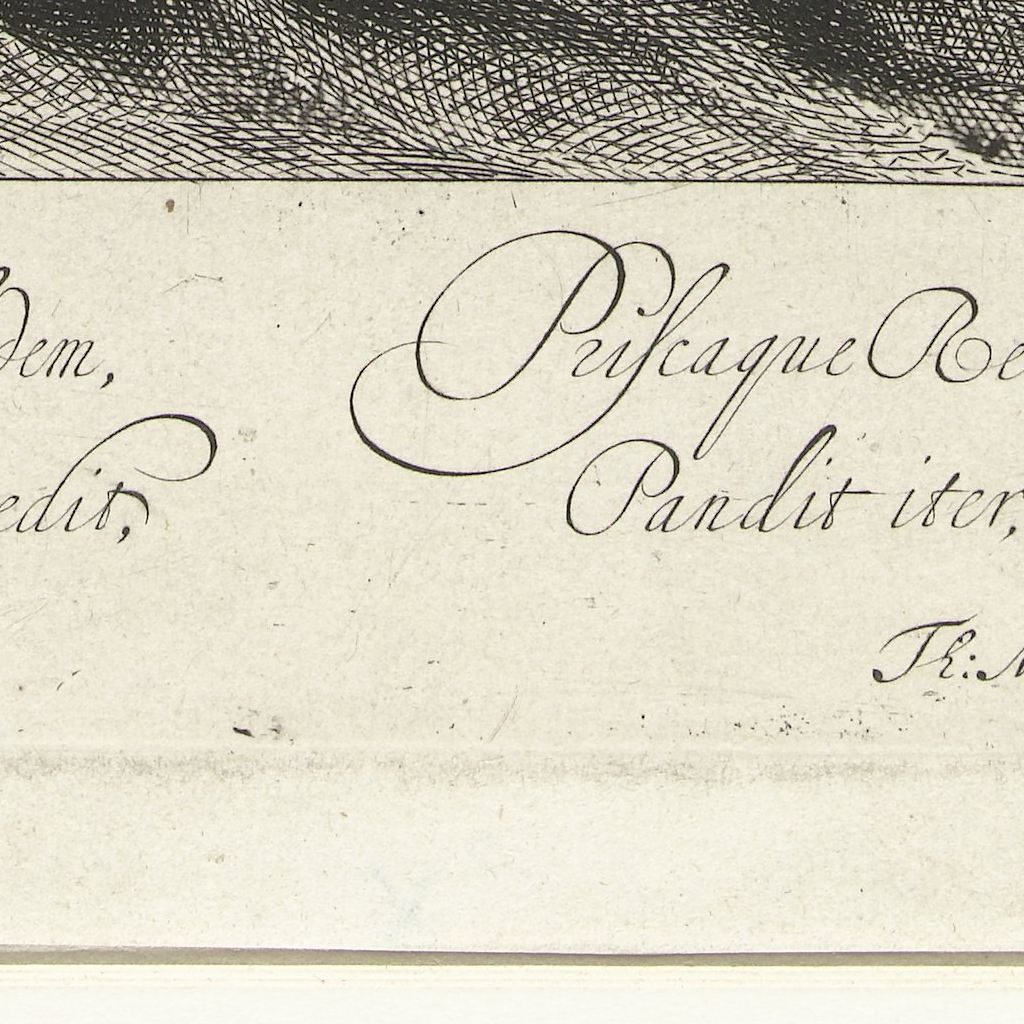 dem, Priscaque Re
edit, Pandit iter,
Th: